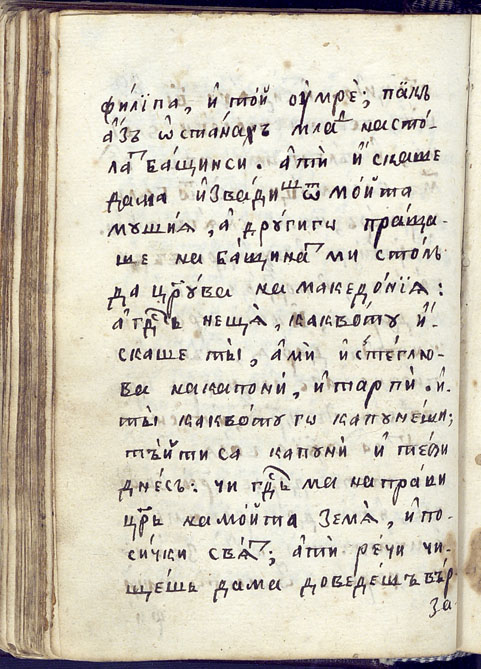 фи́лїпа, и҆ то́й оу҆мрѐ; па́къ
а҆́зъ ѡ҆ста́нахъ млаⷣ насто́-
лаⷮ ба́щинси. а҆тѝ и҆́скаше
дама и҆зва́дишъ ѿ мо́йта
мушиѧ̀, а҆ дрꙋ́гиго пра́ща-
ше на ба́щинаⷮ ми сто́лъ
да црꙋ́ва на македо́нїѧ:
а҆ гдⷭ҇ь неща̀, какво́тꙋ и҆́-
скаше ты̀, а҆мѝ и҆стеглю-
ва накапони́, и҆ тарпѝ. и҆
ты̀ какво́тꙋ го капꙋне́ши;
тъ́йтиса капꙋнѝ и҆ те́би
дне́съ: чи гдⷭ҇ь ма напра́ви
цр҃ь намо́йта земѧ̀, и҆ по-
си́чки свѧⷮ; а҆тѝ ре́чи чи-
ще́шь дама доведе́шъ въ́р
за